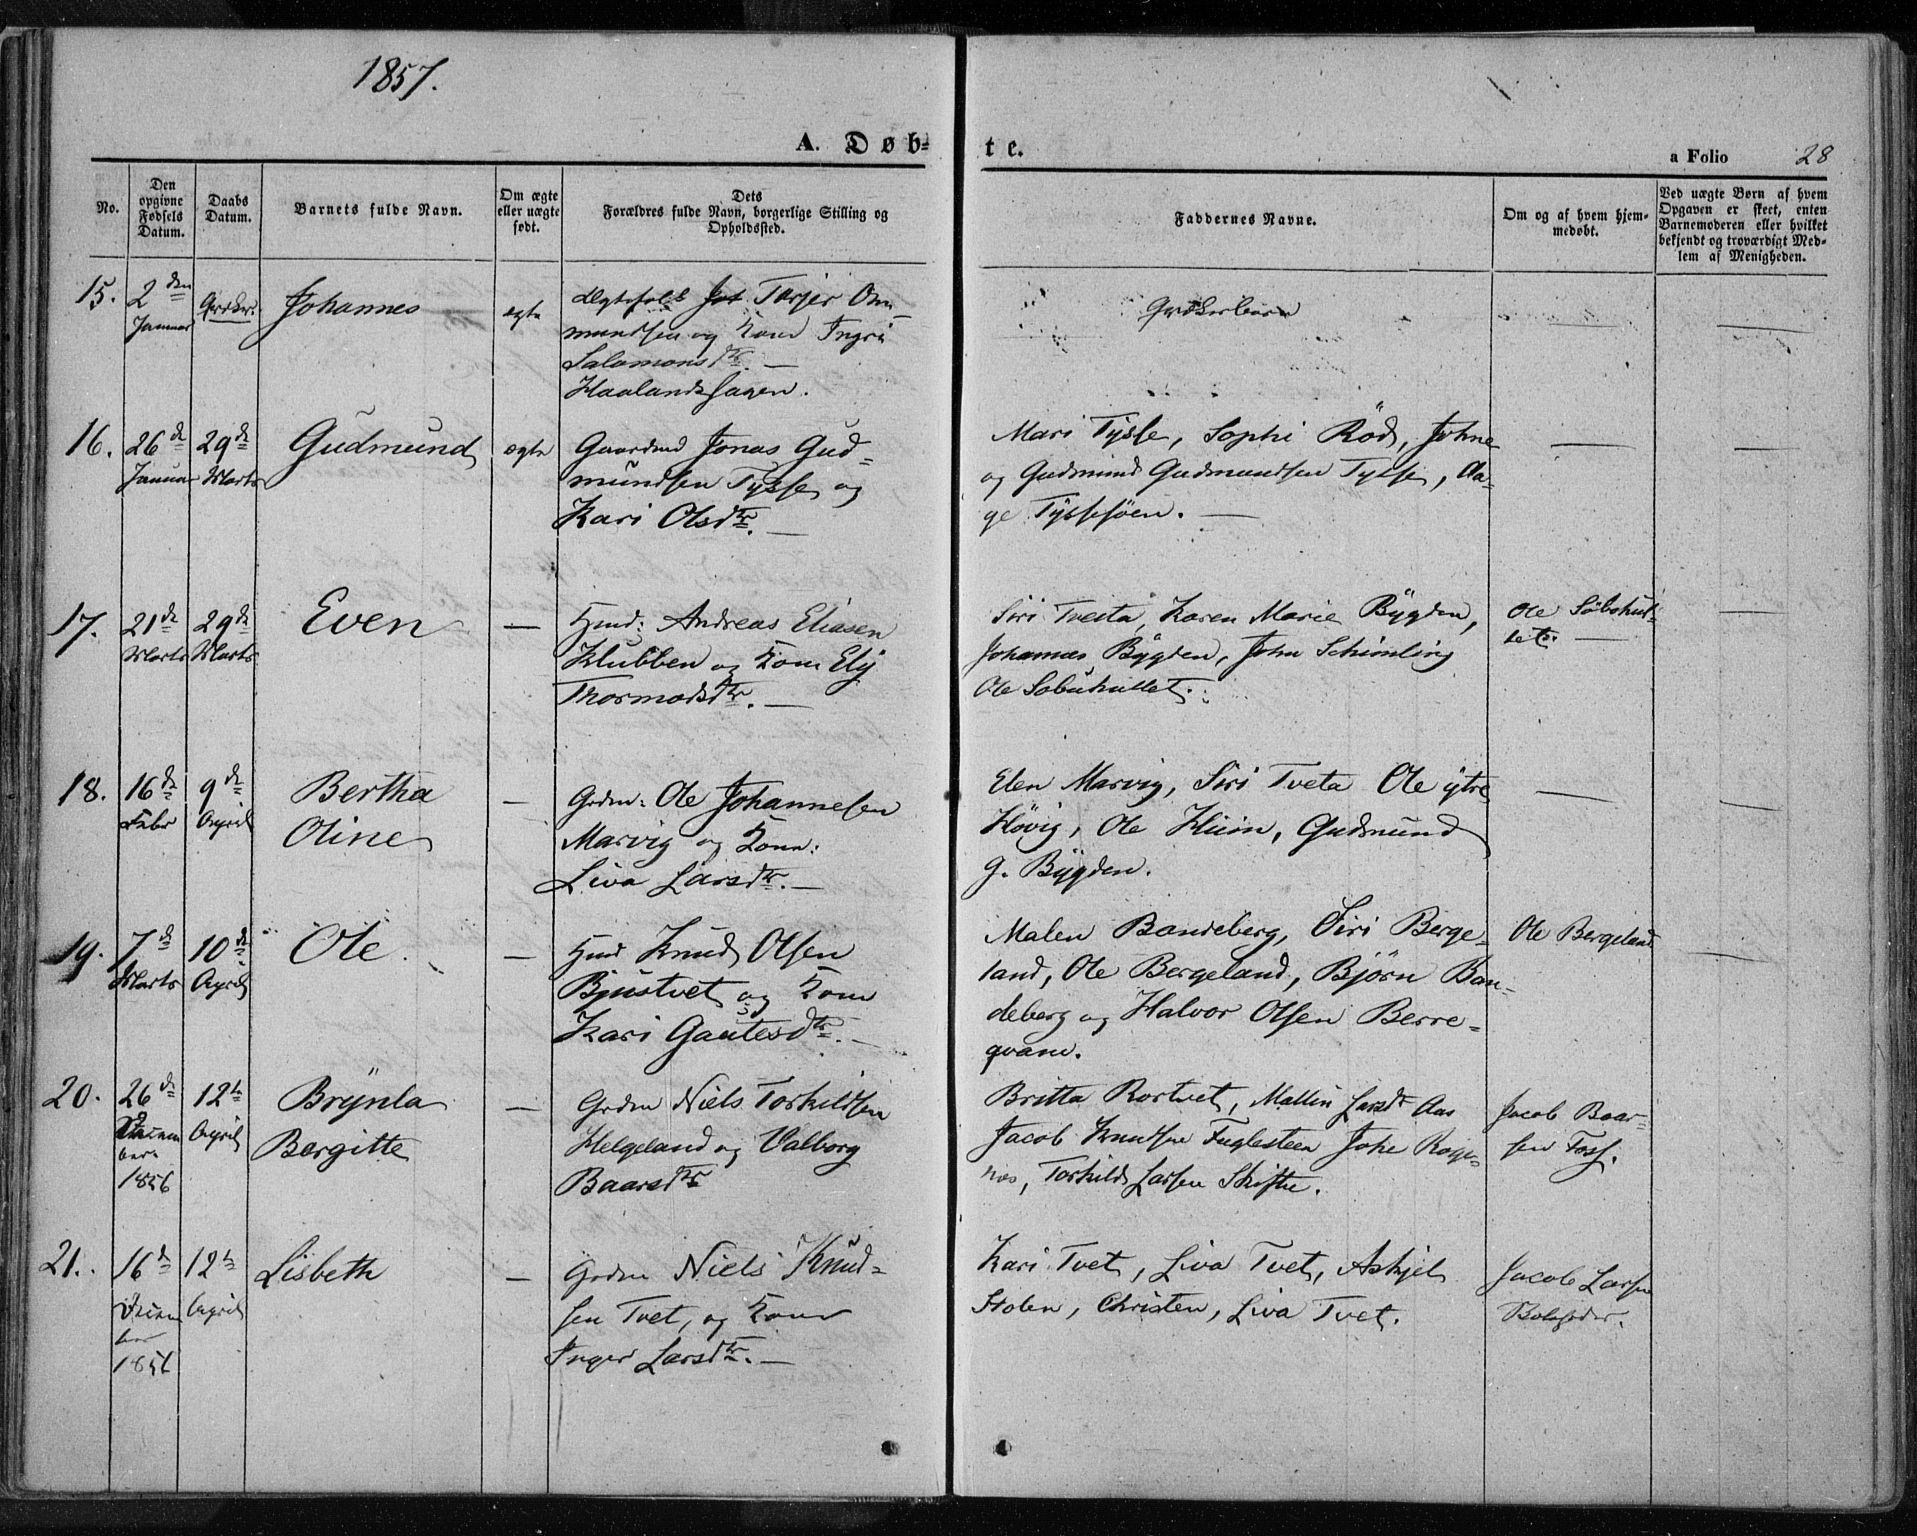 1857.
A. Døb-
te.
a Folio 28
No.
Den opgivne Fødsels Datum.
Daabs Datum.
Barnets fulde Navn.
Om ægte eller uægte født.
Dets Forældres fulde Navn, borgerlige Stilling og Opholdssted.
Faddernes Navne.
Om og af hvem hjem-
medøbt.
Ved uægte Børn af hvem Opgaven er skeet, enten Barnemoderen eller hvilket bekjendt og troværdigt Med-
lem af Menigheden.
15. 2den Januar
Johannes
ægte
Ægtefolk Tarjer Om-
mundsen og Kone Ingri
Salomonsdtr. —
Haalandshagen.
Qvækerbarn
16. 26de Januar 29de Marts
Gudmund
ægte
Gaardmd Jonas Gud-
mundsen Tysse og
Kari Olsdtr. —
Mari Tysse, Sophi Röd, Johne
og Gudmund Gudmundsen Tysse, Aa-
ge Tyssesöen. —
17. 21de Marts 29de Marts
Even
—
Hmd: Andreas Eliasen
Klubben og Kone Ely
Thormodsdtr. —
Siri Tveita, Karen Marie Bÿgden,
Johannes Bÿgden, John Schimling
Ole Sobuhullet.
Ole Söbshul-
let. —
18. 16de Febr 9de April
Bertha
Oline
—
Grdm: Ole Johannesen
Marvig og Kone:
Liva Larsdtr. —
Elen Marvig, Siri Tveta Ole ytre
Høvig, Ole Hiim, Gudmund
G. Bÿgden.
19. 7de Marts 10de April
Ole
—
Hmd Knud Olsen
Bjustvet og Kone
Kari Gautesdtr. —
Malen Bandeberg, Siri Berge-
land, Ole Bergeland, Bjørn Ban-
deberg og Halvor Olsen Berre-
qvam.
Ole Bergeland
20. 26de Decem
ber
1856
12te April
Brÿnla
Bergitte
—
Grdm Niels Torkildsen
Helgeland og Valborg
Baarsdtr
Britta Rortvet, Mallin Larsdtr Aas
Jacob Knudsen Fuglesteen Johe Roge-
næs, Torkild Larsen Skiftu.
Jacob Baar-
sen Foss.
21. 16de Decem
ber
1856
12te April
Lisbeth
—
Grdm Niels Knud-
sen Tvet, og Kone
Inger Larsdtr. —
Kari Tvet, Liva Tvet, Askjel
Stolen, Christen, Liva Tvet.
Jacob Larsen